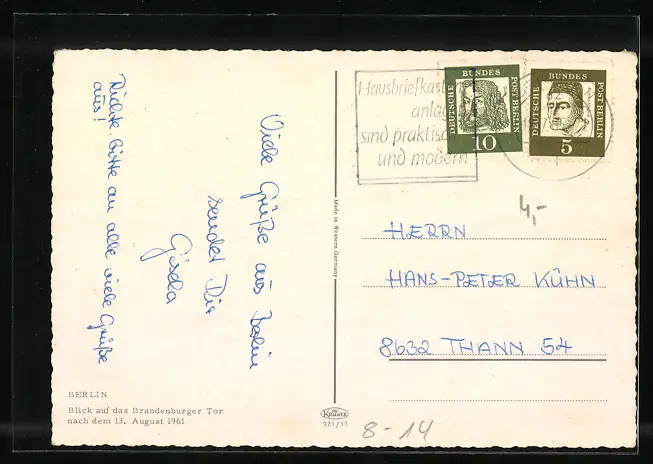 Viele Grüße aus Berlin
sendet Dir
Gisela
Richte bitte an alle viele Grüße
aus!
BERLIN
Blick auf das Brandenburger Tor
nach dem 13. August 1961
Made in Western Germany
KRÜGER
921/33
Hausbriefkast
anlag
sind praktisc
und modern
DEUTSCHE BUNDES POST BERLIN
10
DEUTSCHE BUNDES POST BERLIN
5
4,-
HERRN
HANS-PETER KÜHN
8632 THANN 54
8-14